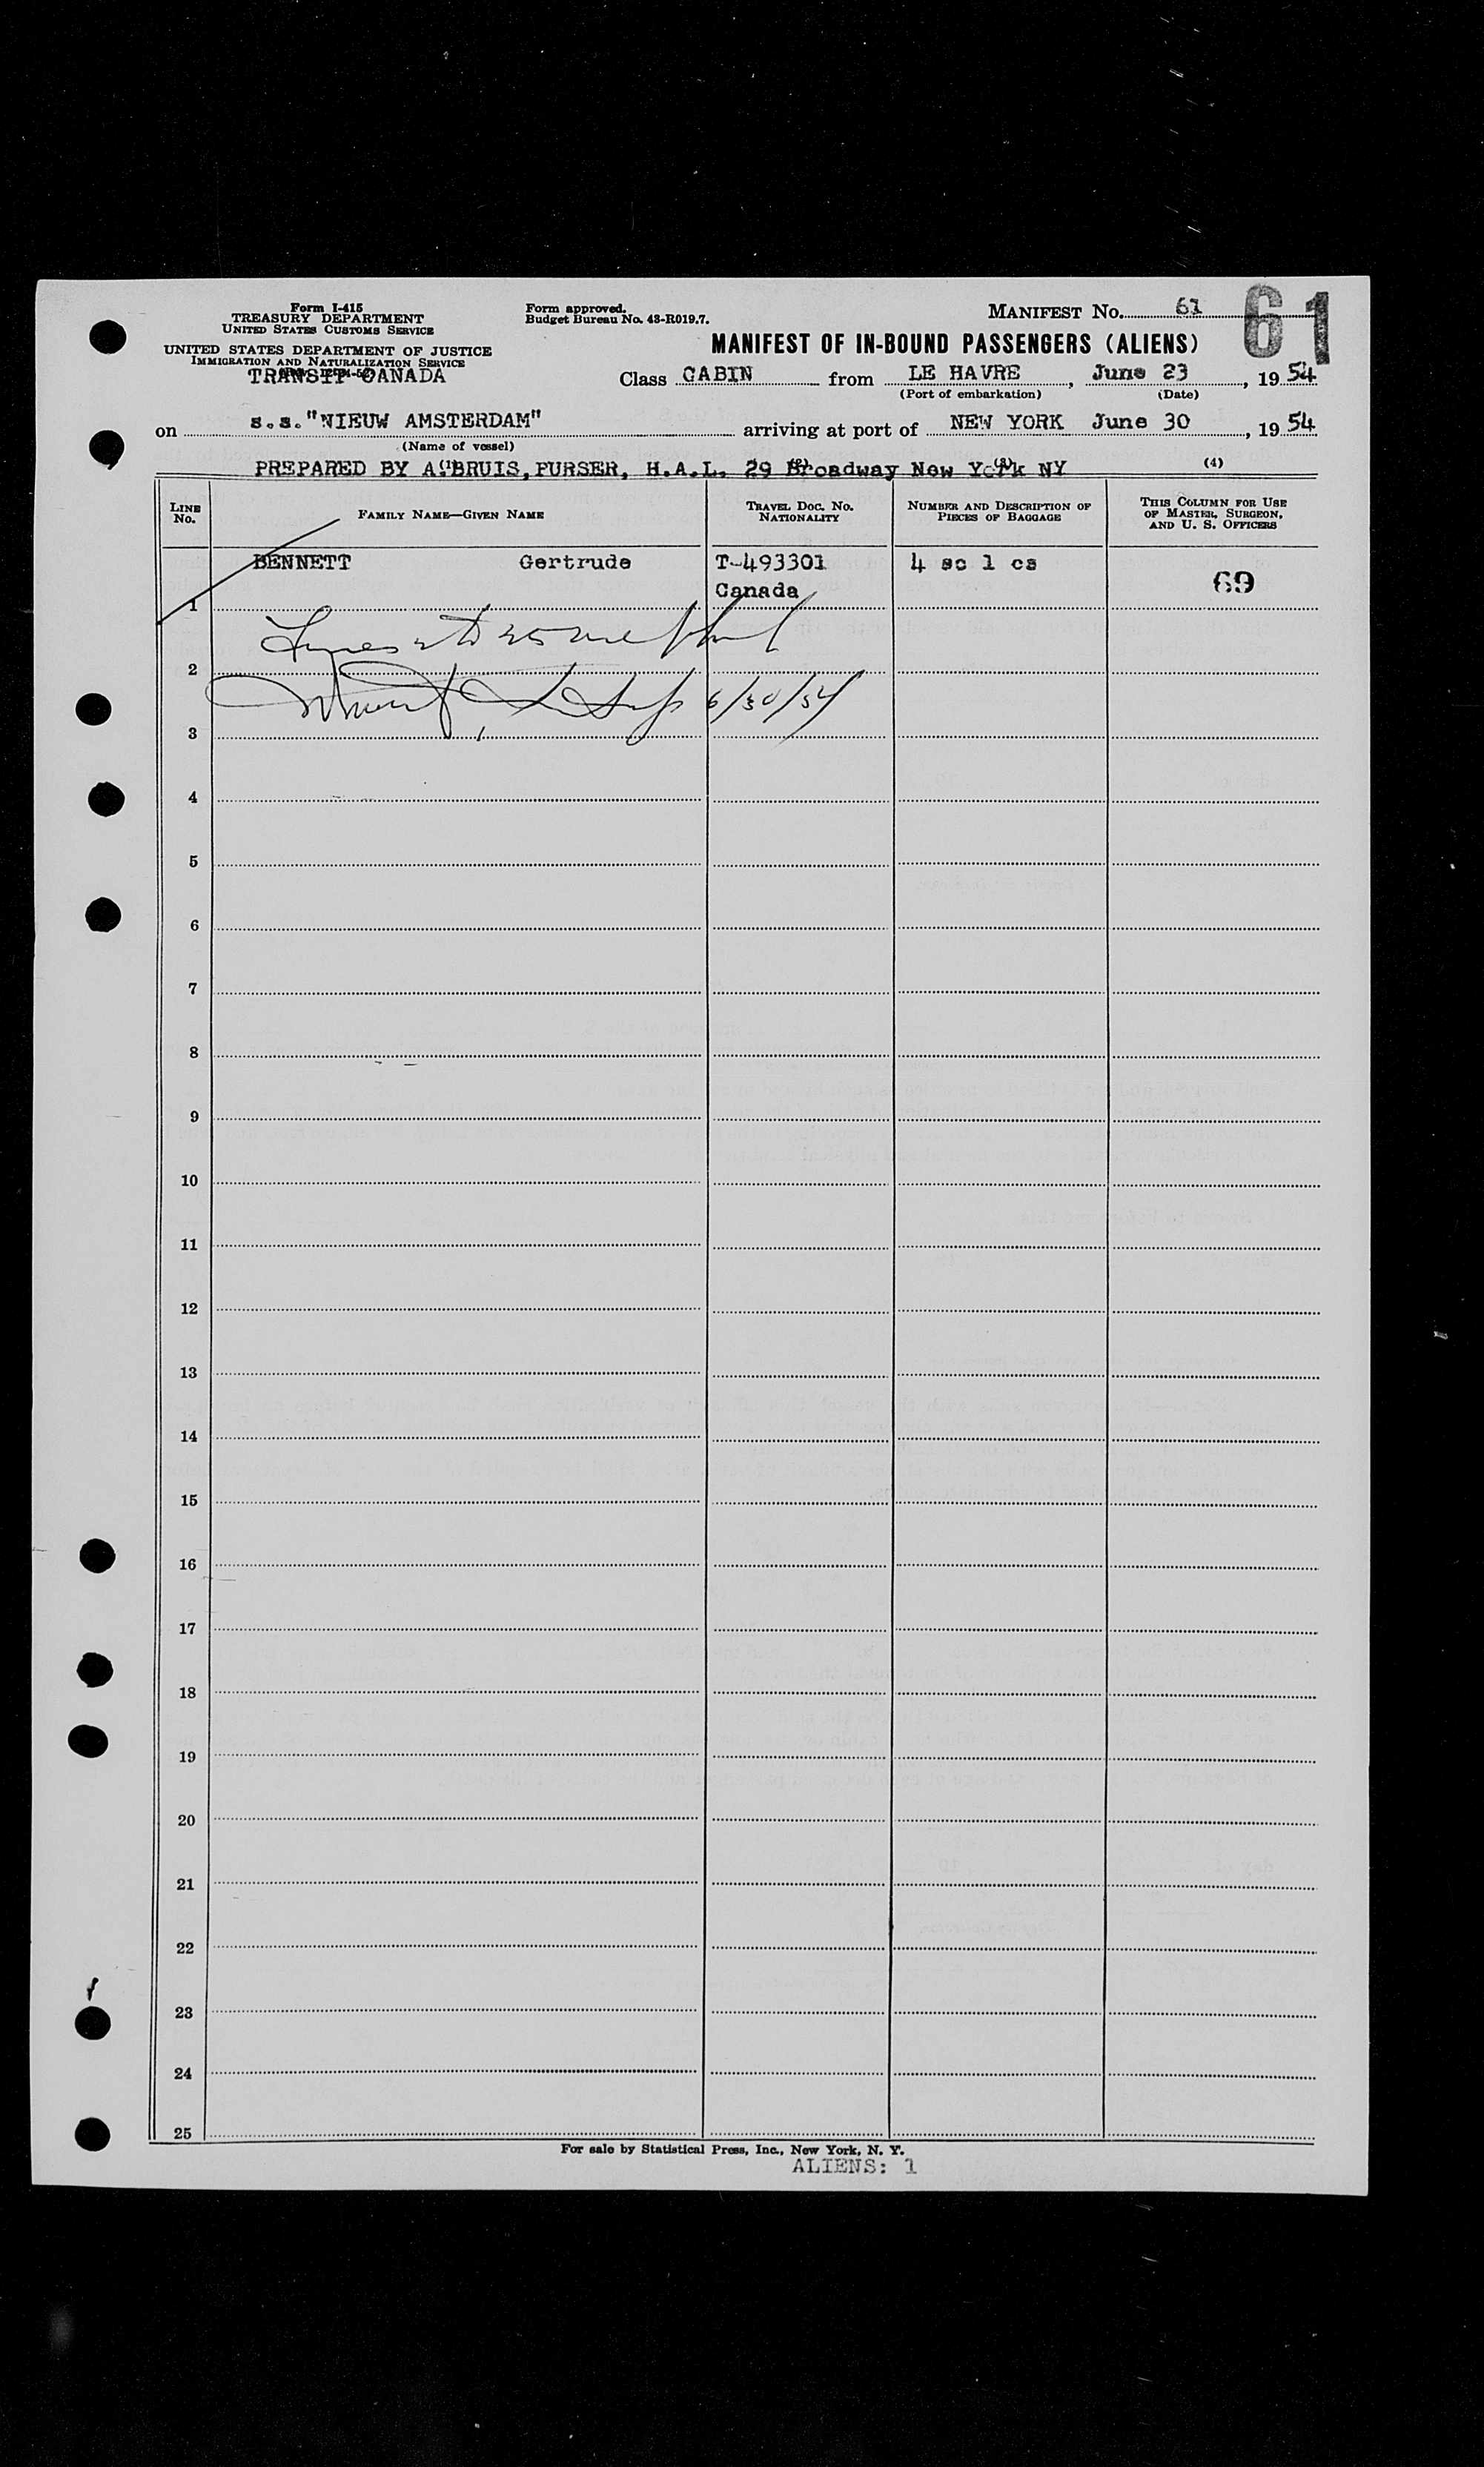 Form I-415
TREASURY DEPARTMENT
UNITED STATES CUSTOMS SERVICE
UNITED STATES DEPARTMENT OF JUSTICE
IMMIGRATION AND NATURALIZATION SERVICE
TRANSIT CANADA
Form approved.
Budget Bureau No. 43-R019.7.
MANIFEST No. 61
61
MANIFEST OF IN-BOUND PASSENGERS (ALIENS)
Class CABIN from LE HAVRE, June 23, 1954
(Port of embarkation) (Date)
on s.s."NIEUW AMSTERDAM" arriving at port of NEW YORK June 30, 1954
(Name of vessel)
PREPARED BY A. BRUIS, PURSER, H.A.L. 29 Broadway New York NY (4)
LINE No. FAMILY NAME—GIVEN NAME TRAVEL DOC. No. NATIONALITY NUMBER AND DESCRIPTION OF PIECES OF BAGGAGE THIS COLUMN FOR USE OF MASTER, SURGEON, AND U. S. OFFICERS
BENNETT Gertrude T-493301 4 sc 1 cs
1 Canada 69
2
6/30/54
3
4
5
6
7
8
9
10
11
12
13
14
15
16
17
18
19
20
21
22
23
24
25
For sale by Statistical Press, Inc., New York, N. Y.
ALIENS: 1